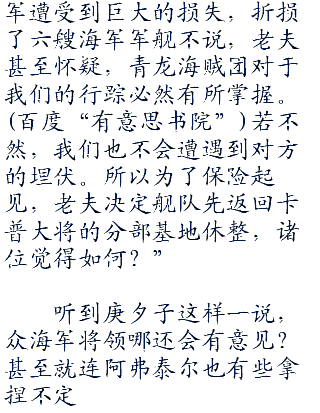 军遭受到巨大的损失，折损
了六艘海军军舰不说，老夫
甚至怀疑，青龙海贼团对于
我们的行踪必然有所掌握。
(百度“有意思书院”)若不
然，我们也不会遭遇到对方
的埋伏。所以为了保险起
见，老夫决定舰队先返回卡
普大将的分部基地休整，诸
位觉得如何？”
听到庚夕子这样一说，
众海军将领哪还会有意见？
甚至就连阿弗泰尔也有些拿
捏不定